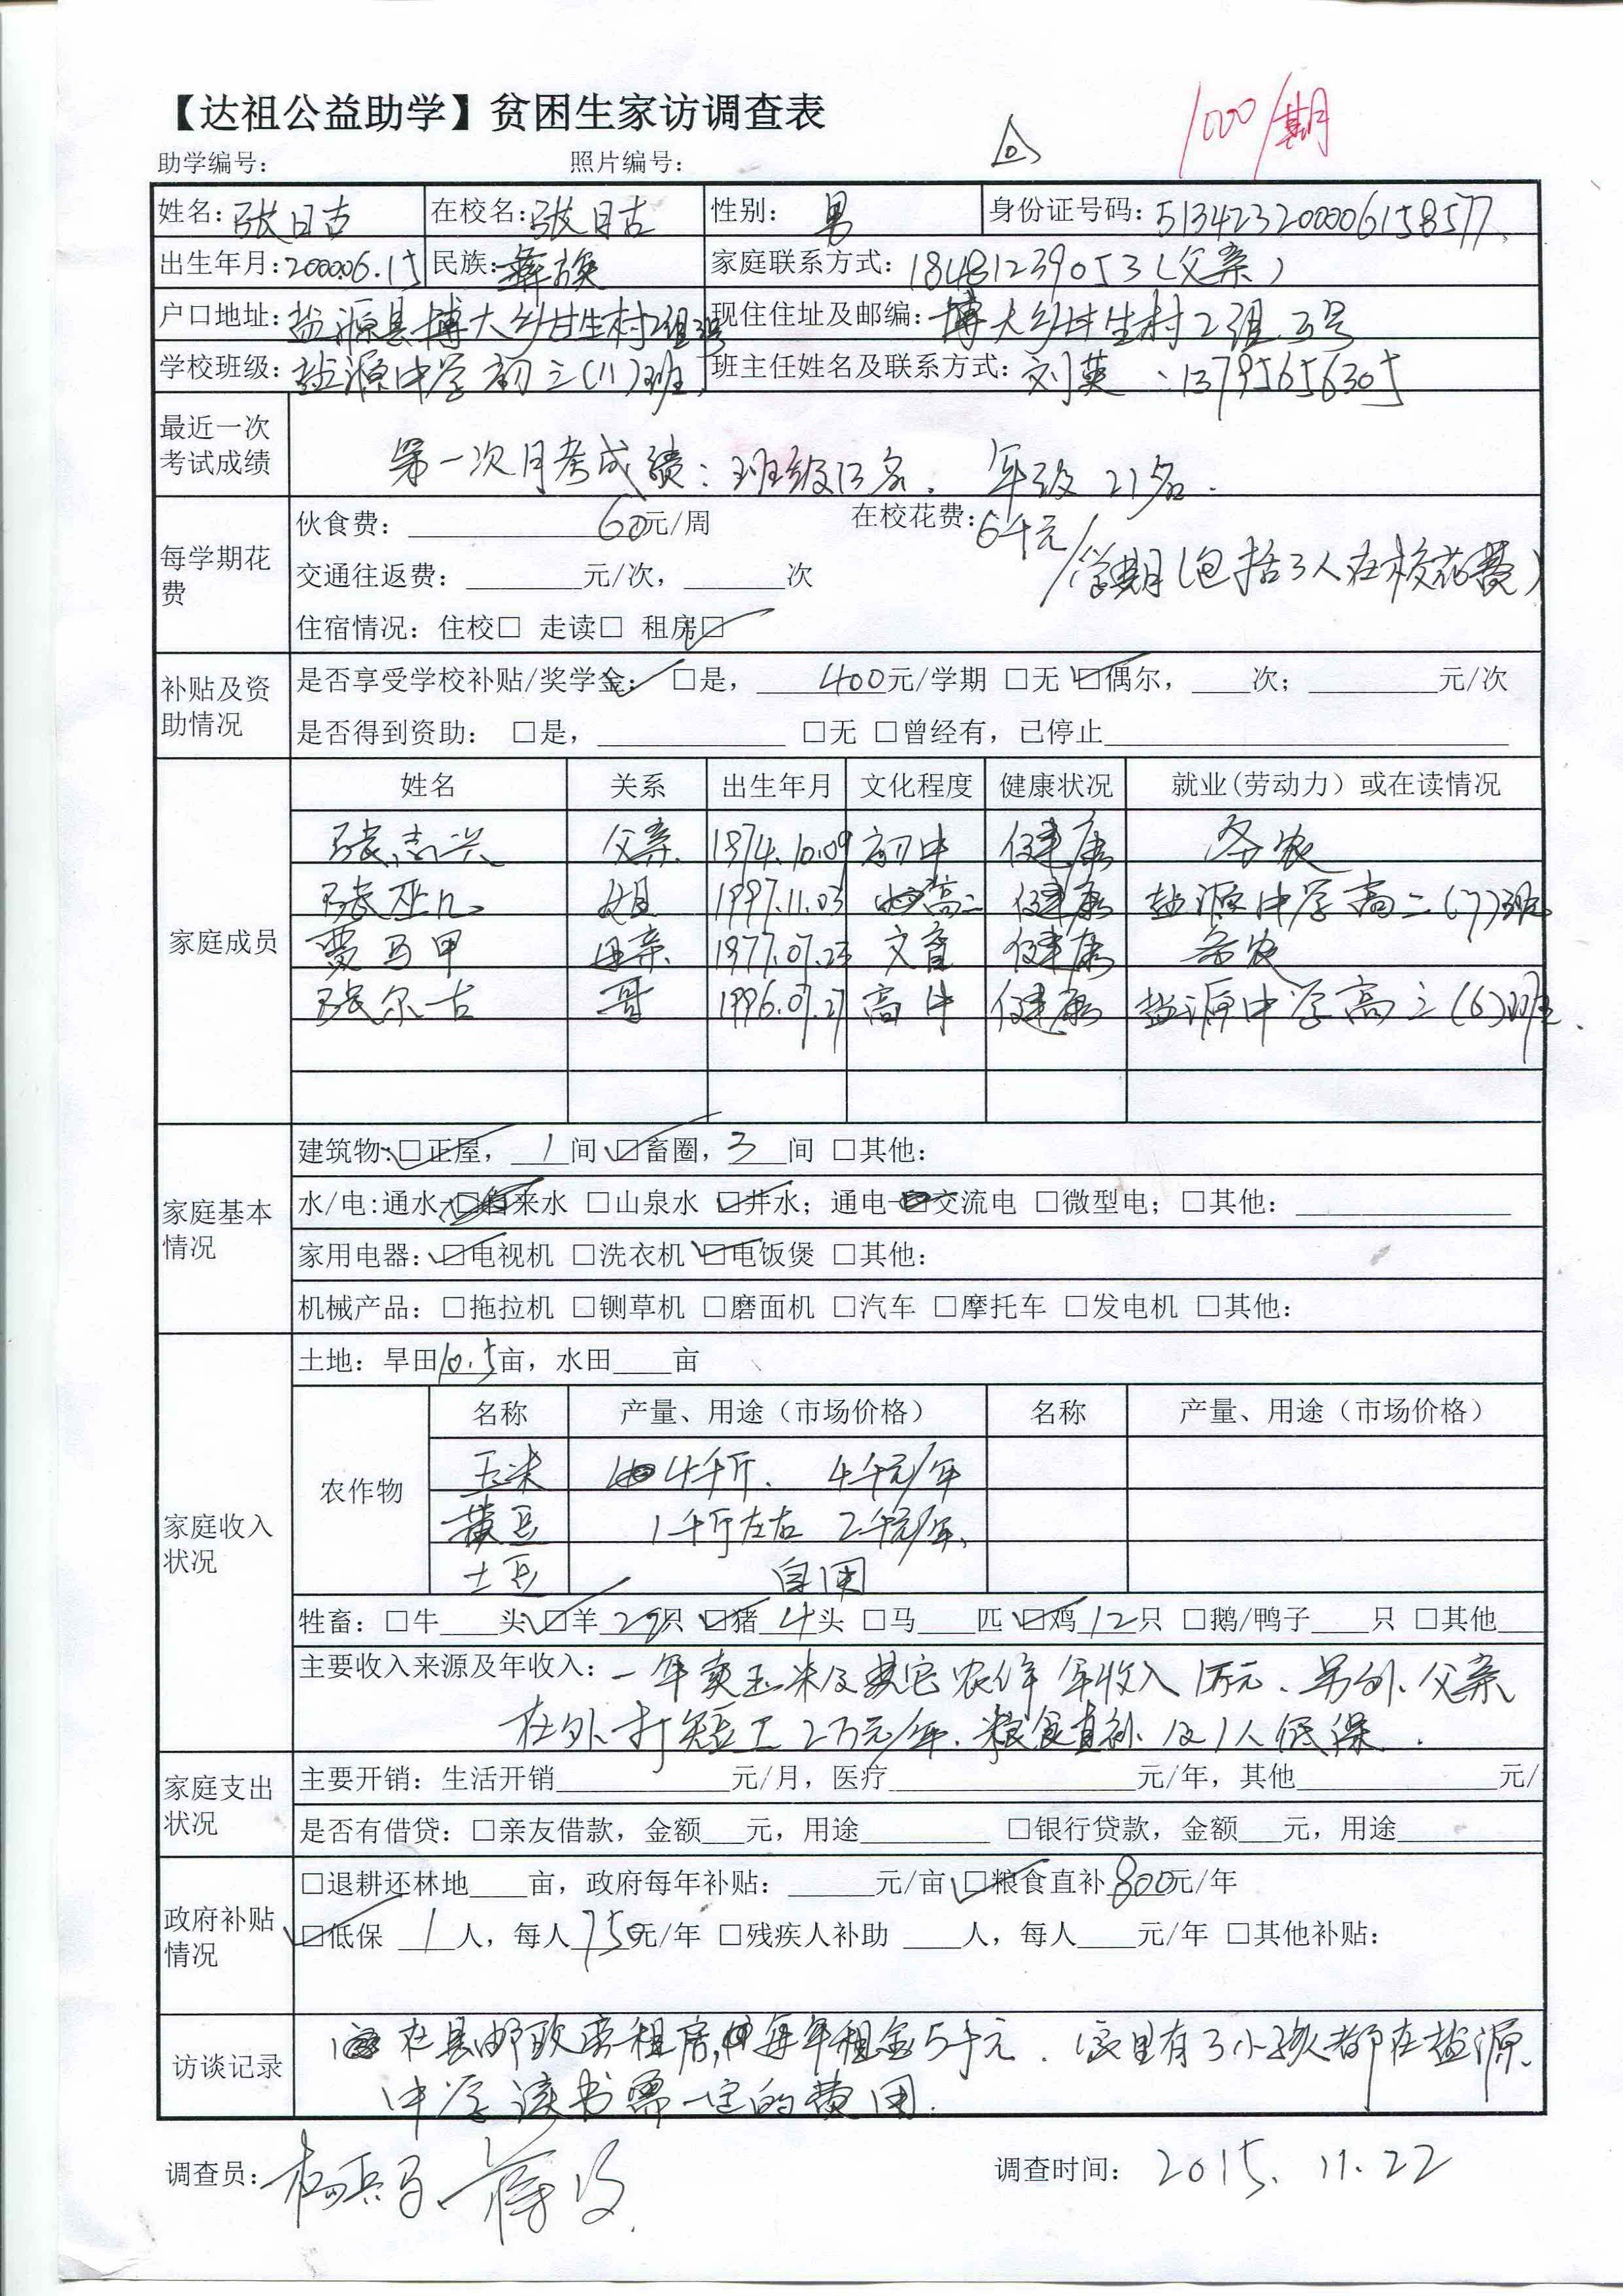 【达祖公益助学】贫困生家访调查表
1000/期
助学编号： 照片编号：
姓名：张日古 在校名：张日古 性别：男 身份证号码：513423200006158577
出生年月：2000.06.15 民族：彝族 家庭联系方式：18481239053（父亲）
户口地址：盐源县博大乡甘生村2组3号 现住住址及邮编：博大乡甘生村2组3号
学校班级：盐源中学初三（11）班 班主任姓名及联系方式：刘英：13795656305
最近一次考试成绩 第一次月考成绩：班级13名、年级21名.
每学期花费 伙食费：60元/周 在校花费：6千元/学期（包括3人在校花费）
交通往返费：元/次，次
住宿情况：住校□ 走读□ 租房☑
补贴及资助情况 是否享受学校补贴/奖学金：□是，400元/学期 □无 ☑偶尔，次；元/次
是否得到资助：□是， □无 □曾经有，已停止
家庭成员 姓名 关系 出生年月 文化程度 健康状况 就业(劳动力）或在读情况
张志兴 父亲 1974.10.09 初中 健康 务农
张 姐 1997.11.03 高二 健康 盐源中学高二（7）班
贾马甲 母亲 1977.07.23 文盲 健康 务农
张尔古 哥 1996.07.27 高中 健康 盐源中学高三（6）班.
家庭基本情况 建筑物：☑正屋，1间 ☑畜圈，3间 □其他：
水/电:通水 □自来水 □山泉水 ☑井水；通电 □交流电 □微型电；□其他：
家用电器：☑电视机 □洗衣机 ☑电饭煲 □其他：
机械产品：□拖拉机 □铡草机 □磨面机 □汽车 □摩托车 □发电机 □其他：
家庭收入状况 土地：旱田10.5亩，水田亩
农作物 名称 产量、用途（市场价格） 名称 产量、用途（市场价格）
玉米 4千斤. 4千元/年
黄豆 1千斤左右 2千元/年.
土豆 自用
牲畜：□牛头 ☑羊只 ☑猪4头 □马匹 ☑鸡12只 □鹅/鸭子只 □其他
主要收入来源及年收入：一年卖玉米及其它农作 年收入1万元、另外父亲
在外打短工2万元/年.粮食直补及1人低保.
家庭支出状况 主要开销：生活开销元/月，医疗元/年，其他元/
是否有借贷：□亲友借款，金额元，用途 □银行贷款，金额元，用途
政府补贴情况 □退耕还林地亩，政府每年补贴：元/亩 ☑粮食直补800元/年
☑低保1人，每人750元/年 □残疾人补助人，每人元/年 □其他补贴：
访谈记录 在县邮政旁租房，每年租金5千元.家里有3小孩都在盐源
中学读书需一定的费用.
调查员： 调查时间：2015.11.22